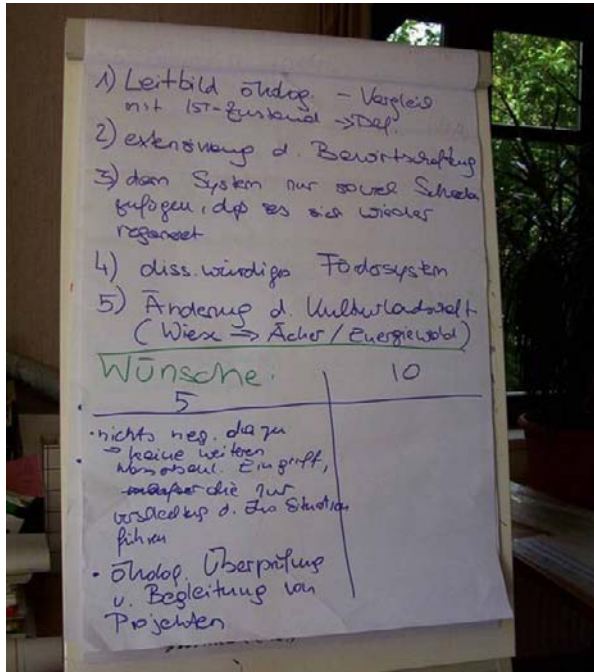 1) Leitbild ökolog. - Vergleich
mit IST-Zustand → Def.
2) extensivierung d. Bewirtschaftung
3) dem System nur soviel Schaden
zufügen, daß es sich wieder
regeneriert
4) diss. würdiges Fördersystem
5) Änderung d. Kulturlandschaft
(Wiese ⇒ Äcker / Energiewald)
Wünsche:
5 10
• nichts neg. dazu
→ keine weiteren
Eingriff,
die zur
d. Situation
führen
• ökolog. Überprüfung
u. Begleitung von
Projekten